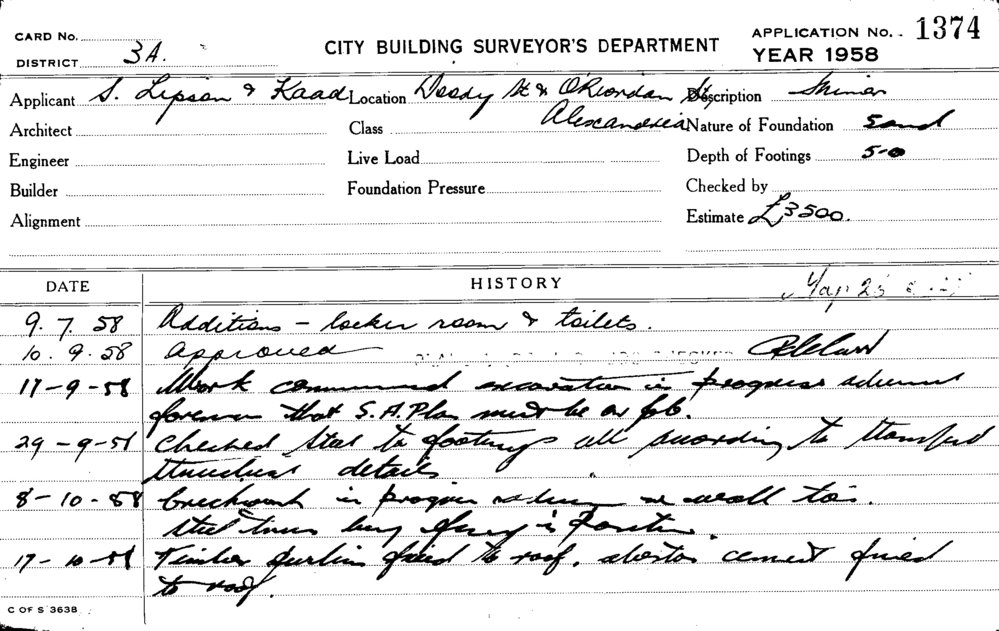 CARD No.
DISTRICT 3A.
CITY BUILDING SURVEYOR'S DEPARTMENT
APPLICATION No. 1374
YEAR 1958
Applicant S. Lipson & Kaad Location Doody St & O'Riordan St, Description
Alexandria
Architect Class Nature of Foundation Sand
Engineer Live Load Depth of Footings 5-0
Builder Foundation Pressure Checked by
Alignment Estimate £3500.
DATE HISTORY
9.7.58 Additions - locker room & toilets.
10.9.58 Approved
17-9-58 Work commenced excavation in progress advised
foreman that S.A. Plan must be on job.
29-9-58 Checked steel to footings all according to stamped
structural details
8-10-58 brickwork in progress
steel being in position.
17-10-58 Timber purlins fixed to roof. asbestos cement fixed
to roof.
C OF S 3638